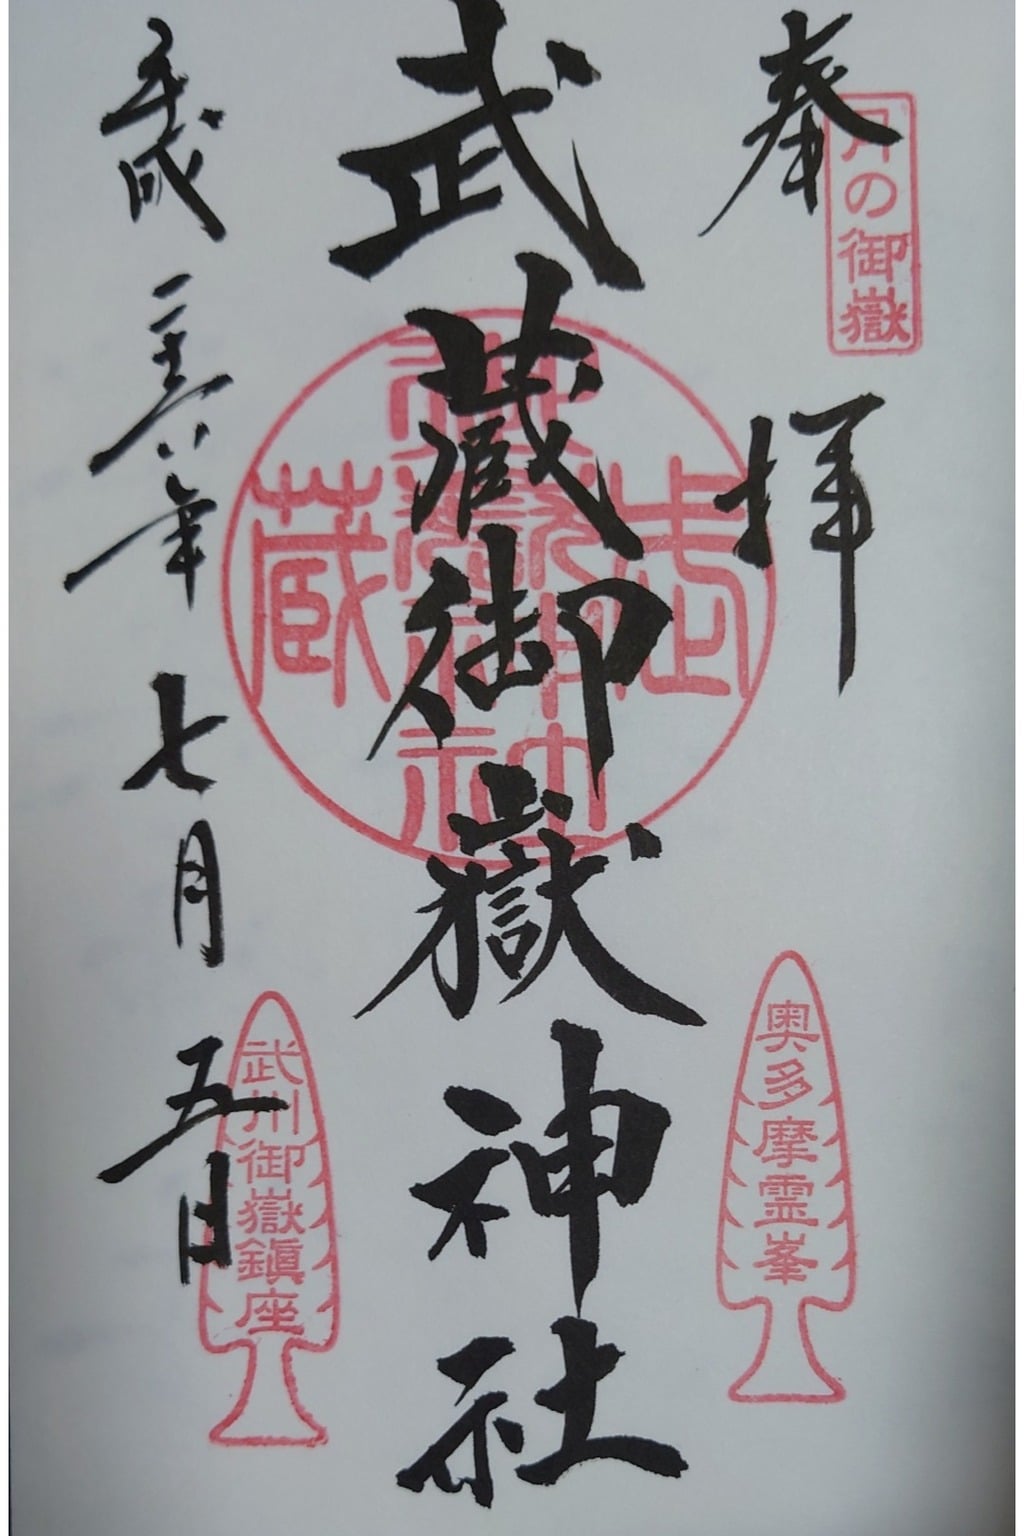 奉拝
の御嶽
奥多摩霊峯
武蔵御嶽神社
武蔵御嶽神社
平成二十六年七月五日
武州御嶽鎮座